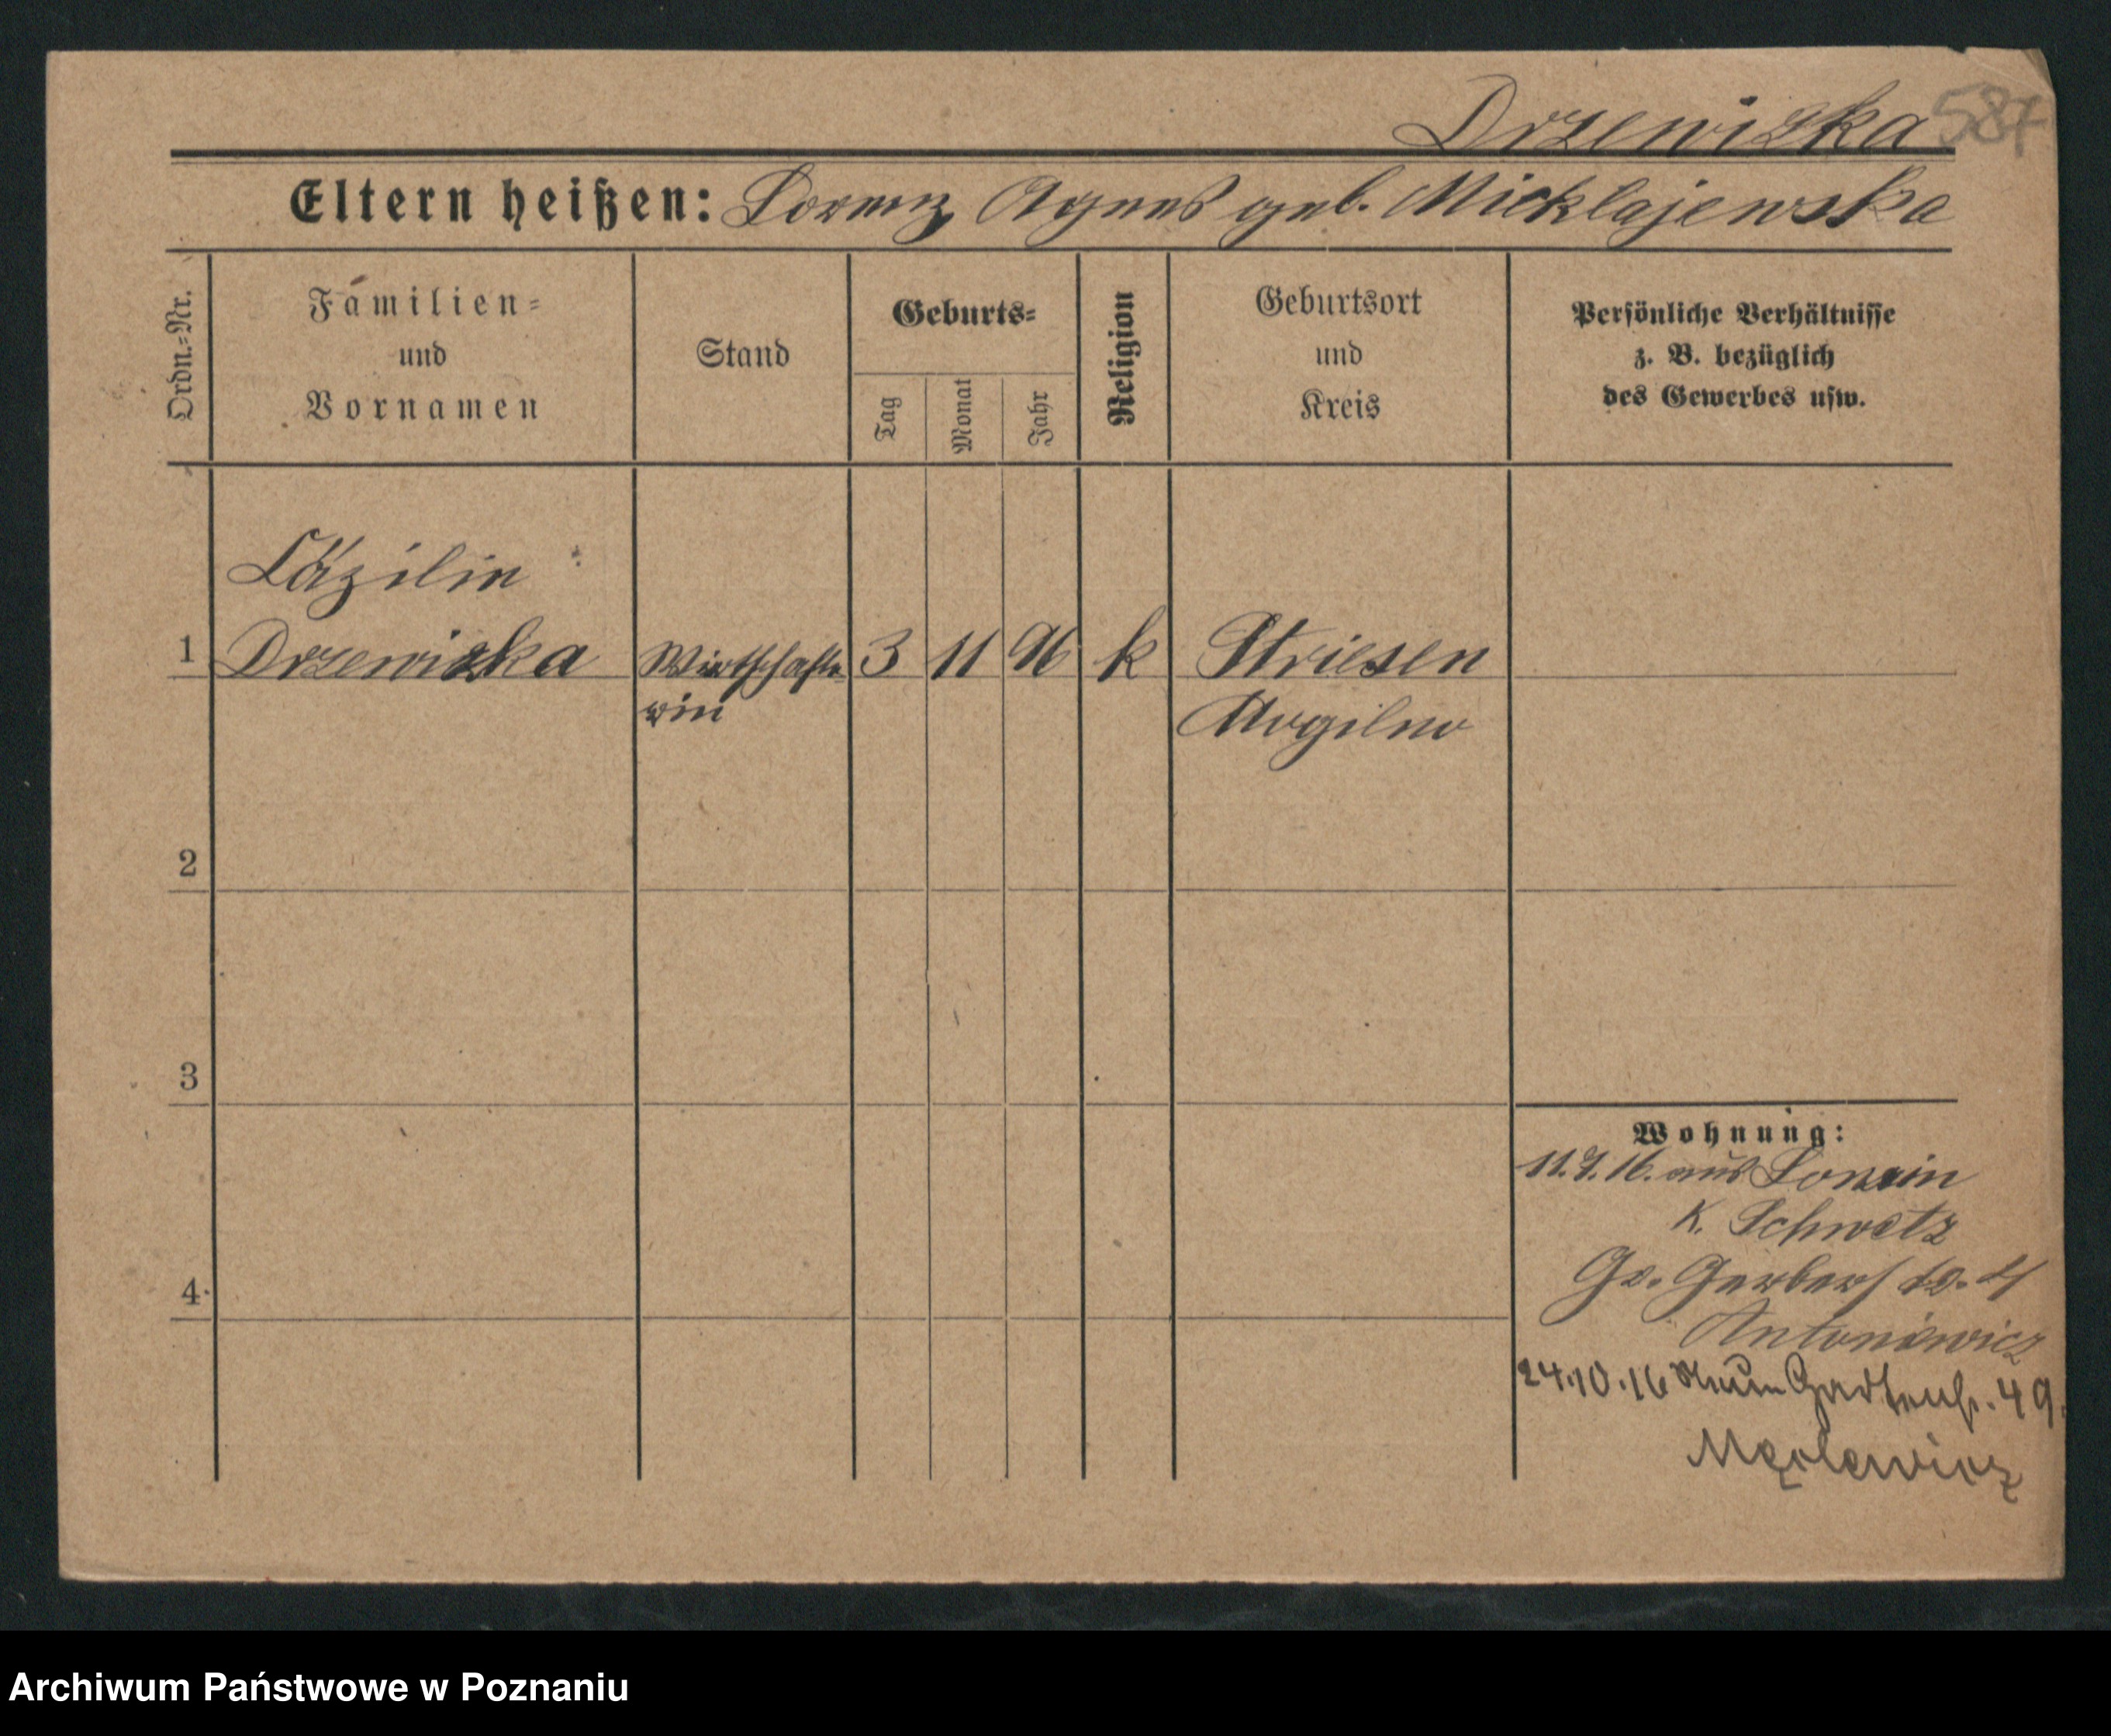 Drzewizka 587
Eltern heißen: Lorenz, Agnes geb. Micklajewska
Ordn.=Nr.
Familien=
und
Vornamen
Stand
Geburts=
Tag
Monat
Jahr
Religion
Geburtsort
und
Kreis
Persönliche Verhältnisse
z. B. bezüglich
des Gewerbes usw.
Cäzilie
1 Drzewizka Wirtschafte= 3 11 96 k Striesen
rin Mogilno
2
3
4
Wohnung:
11.7.16. aus Lonzin
K. Schwetz
Gr. Gerberstr. 4
Antoniewicz
24.10.16 Gartenstr. 49.
Archiwum Państwowe w Poznaniu